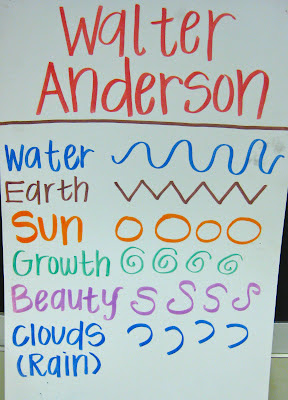 Walter
Anderson
Water
Earth
Sun
Growth
Beauty S S S S
Clouds
(Rain)